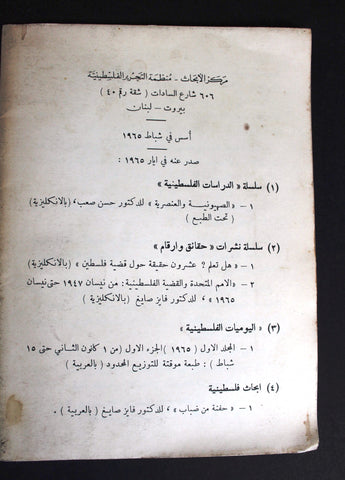 مركز الابحاث - منظمة التحرير الفلسطينية
٦٠٦ شارع السادات ( شقة رقم ٤٠ )
بيروت - لبنان
أسس في شباط ١٩٦٥
صدر عنه في ايار ١٩٦٥ :
(١) سلسلة « الدراسات الفلسطينية »
١ - « الصهيونية والعنصرية » للدكتور حسن صعب، (بالانكليزية)
( تحت الطبع )
(٢) سلسلة نشرات « حقائق وارقام »
١ - « هل تعلم ? عشرون حقيقة حول قضية فلسطين » (بالانكليزية)
٢ - « الامم المتحدة والقضية الفلسطينية : من نيسان ١٩٤٧ حتى نيسان
١٩٦٥ » ، للدكتور فايز صايغ (بالانكليزية )
(٣) « اليوميات الفلسطينية »
١ - المجلد الاول ( ١٩٦٥ ) الجزء الاول (من ١ كانون الثاني حتى ١٥
شباط ) : طبعة موقتة للتوزيع المحدود ( بالعربية )
(٤) ابحاث فلسطينية
١ - « حفنة من ضباب » ، للدكتور فايز صايغ ( بالعربية ) .